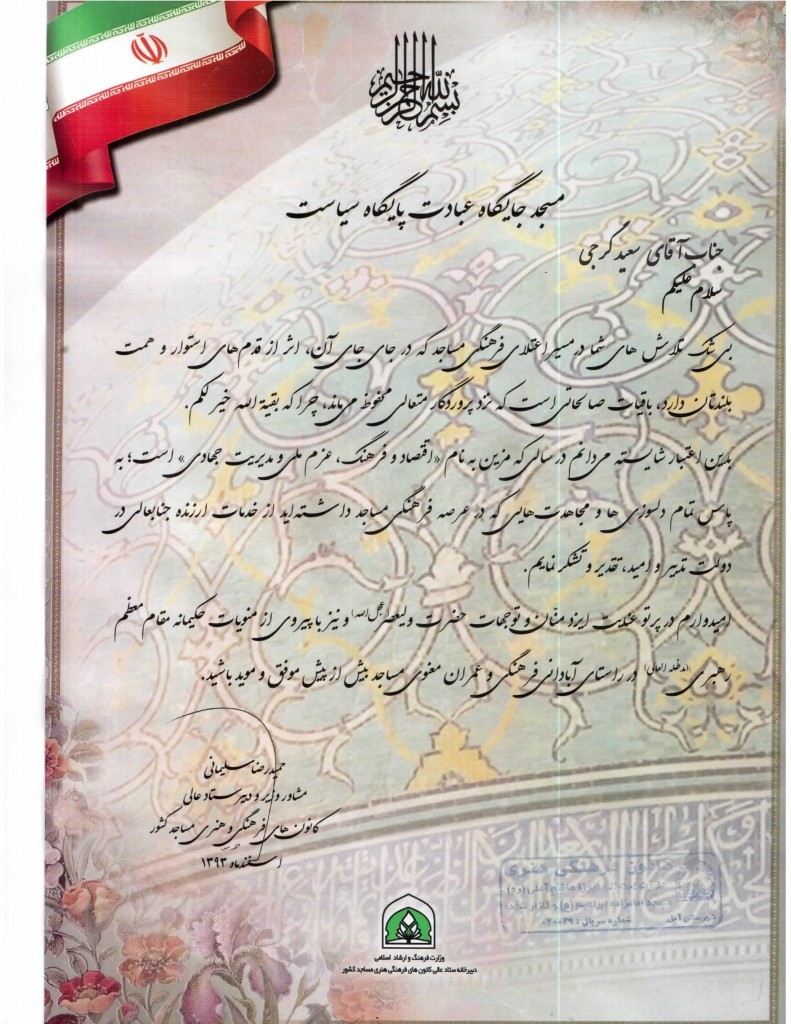 بسم الله الرحمن الرحیم
مسجد جایگاه عبادت پایگاه سیاست
جناب آقای سعید گرجی
سلام علیکم
بی شک تلاش های شما در مسیر اعتلای فرهنگی مساجد که در جای جای آن، اثر از قدم‌های استوار و همت
بلندتان دارد، باقیات صالحاتی است که نزد پروردگار متعالی محفوظ می‌ماند، چرا که بقیة الله خیر لکم.
بدین اعتبار شایسته می‌دانم در سالی که مزین به نام «اقتصاد و فرهنگ، عزم ملی و مدیریت جهادی» است؛ به
پاس تمام دلسوزی ها و مجاهدت‌هایی که در عرصه فرهنگی مساجد داشته‌اید از خدمات ارزنده جنابعالی در
دولت تدبیر و امید، تقدیر و تشکر نمایم.
امیدوارم در پرتو عنایت ایزد منان و توجهات حضرت ولیعصر (عجل الله) و نیز با پیروی از منویات حکیمانه مقام معظم
رهبری (مدظله العالی) در راستای آبادانی فرهنگی و عمران معنوی مساجد بیش از پیش موفق و موید باشید.
حمیدرضا سلیمانی
مشاور وزیر و دبیر ستاد عالی
کانون های فرهنگی و هنری مساجد کشور
اسفندماه ۱۳۹۳
کانون فرهنگی هنری
شهرستان آمل شماره سریال: ۰۲۰۰۲۹
وزارت فرهنگ و ارشاد اسلامی
دبیرخانه ستاد عالی کانون های فرهنگی هنری مساجد کشور